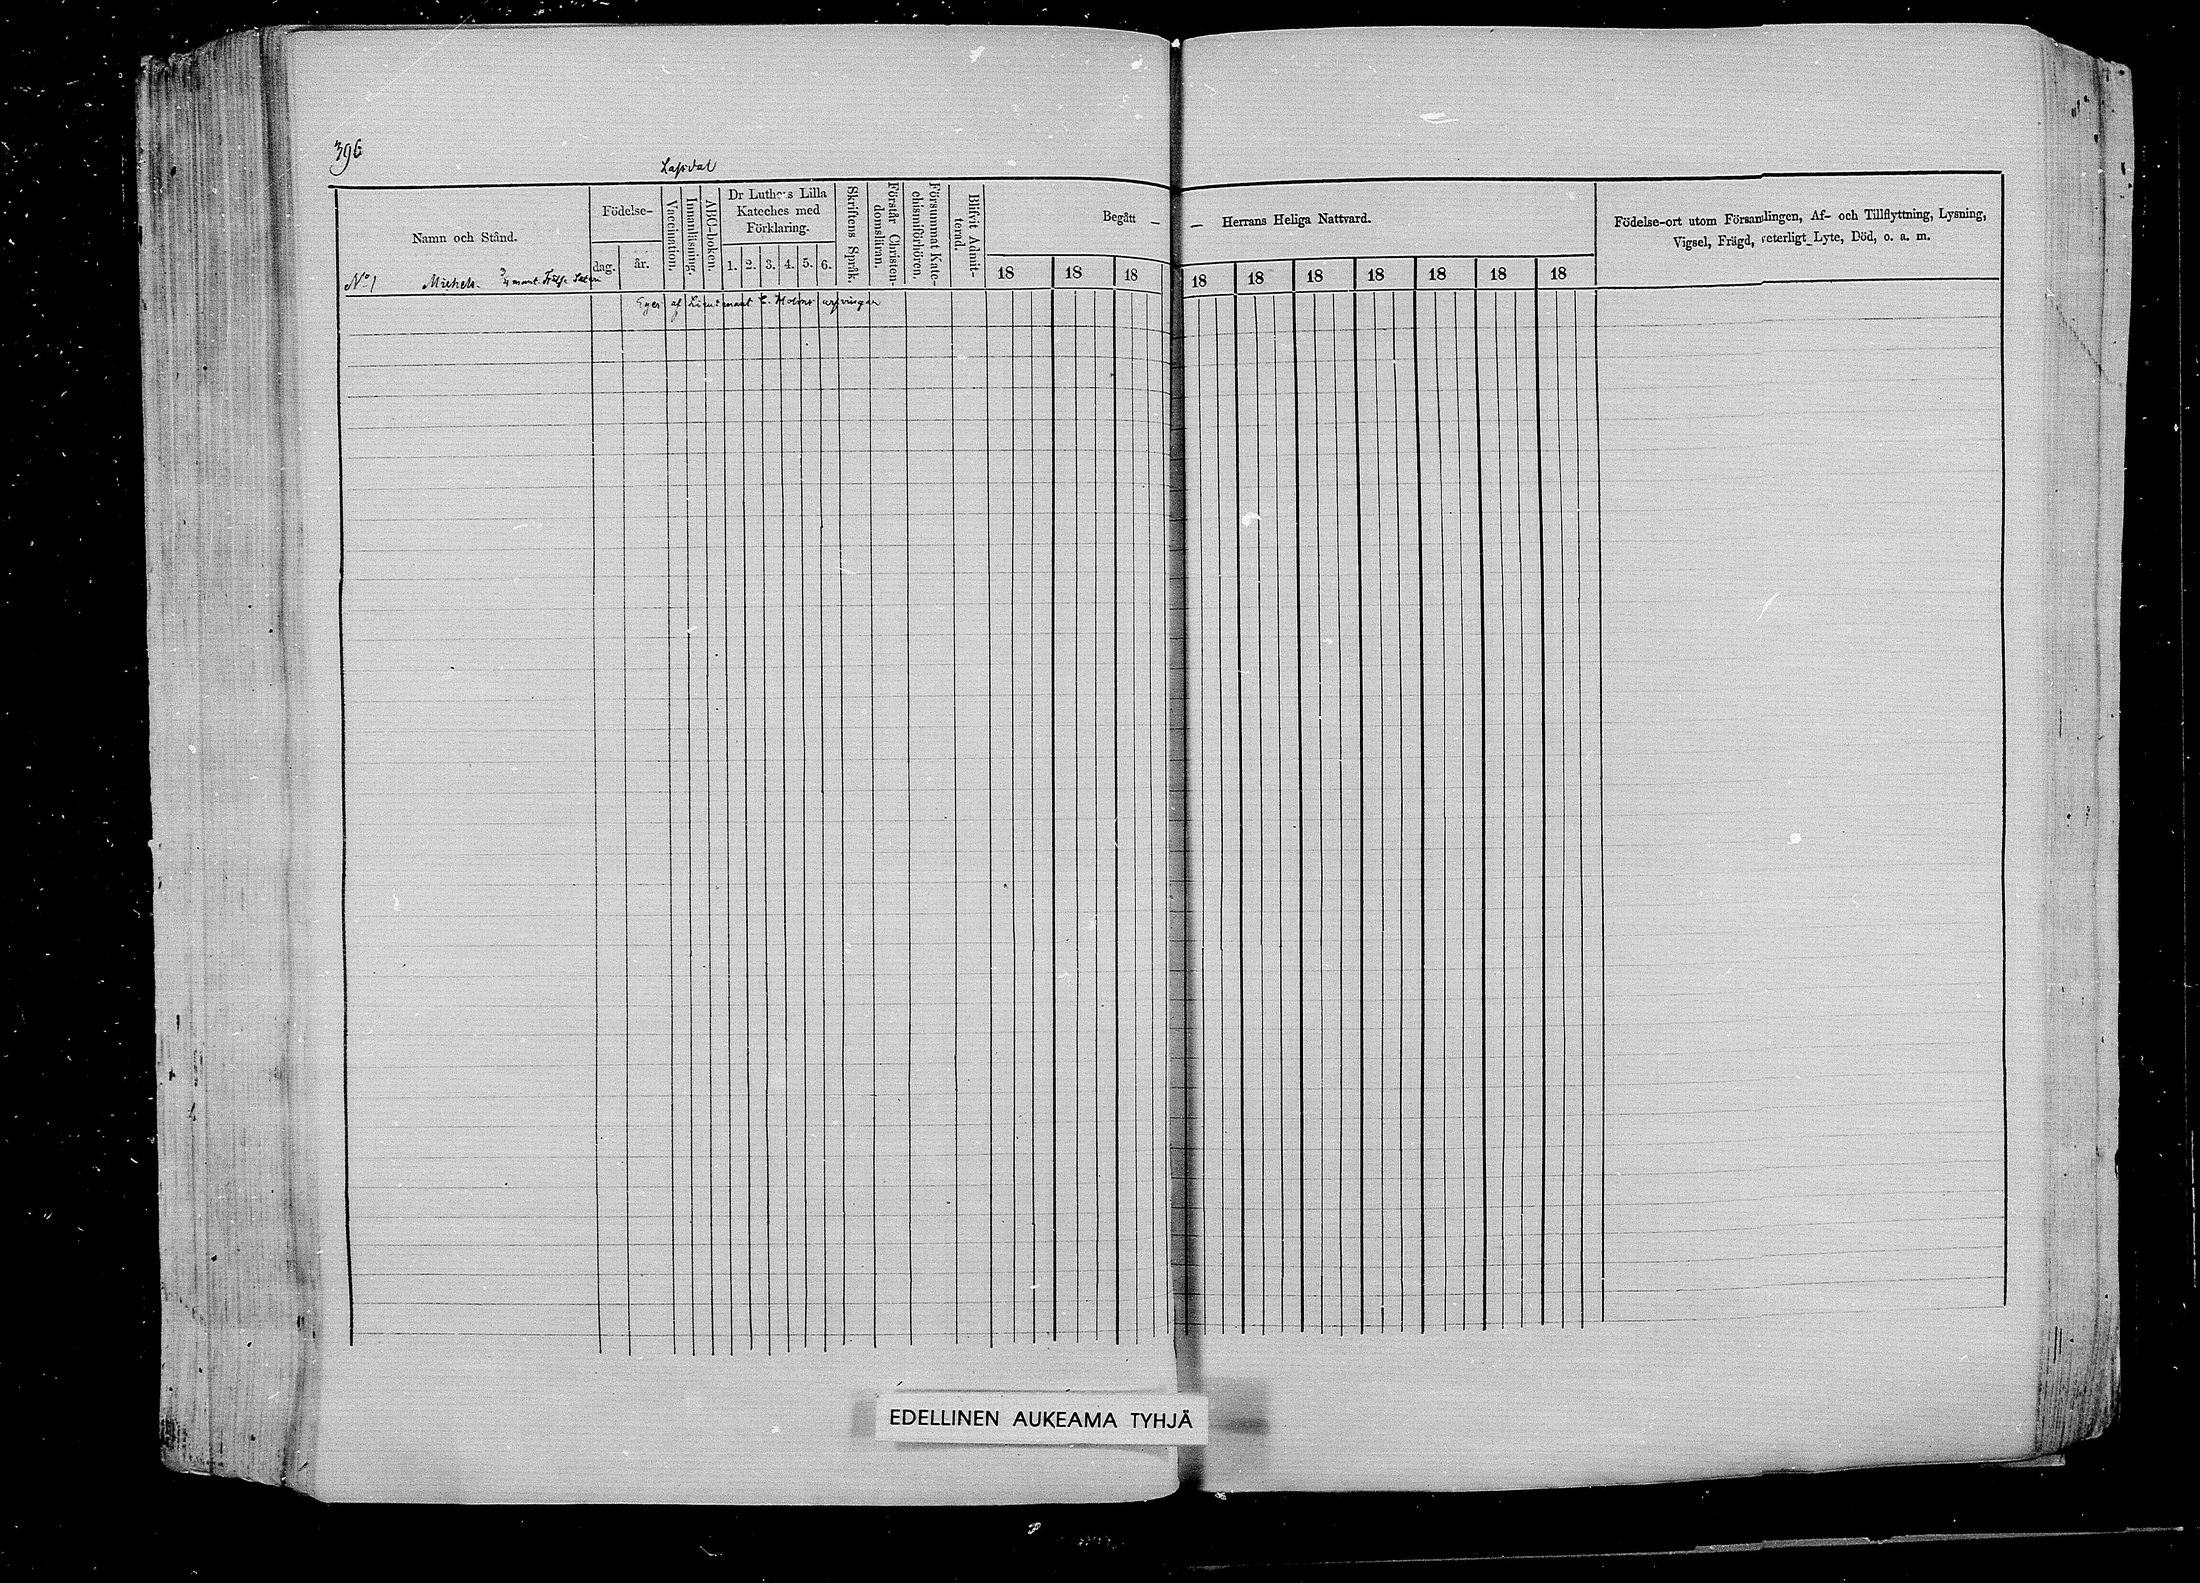 396
Lapdal
Namn och Stånd.
Födelse-
dag.
år.
Vaccination.
Innanläsning.
ABC-boken.
Dr Luthers Lilla
Kateches med
Förklaring.
1. 2. 3. 4. 5. 6.
Skriftens Språk.
Förstår Christen-
domsläran.
Försummat Kate-
chismiförhören.
Blifvit Admit-
terad.
Begått —
— Herrans Heliga Nattvard.
18 18 18 18 18 18 18 18 18 18
Födelse-ort utom Församlingen, Af- och Tillflyttning, Lysning,
Vigsel, Frägd, veterligt Lyte, Död, o. a. m.
No 1 Michels mant.
Eges af Lieutenant C. Holms arfvingar
EDELLINEN AUKEAMA TYHJÄ